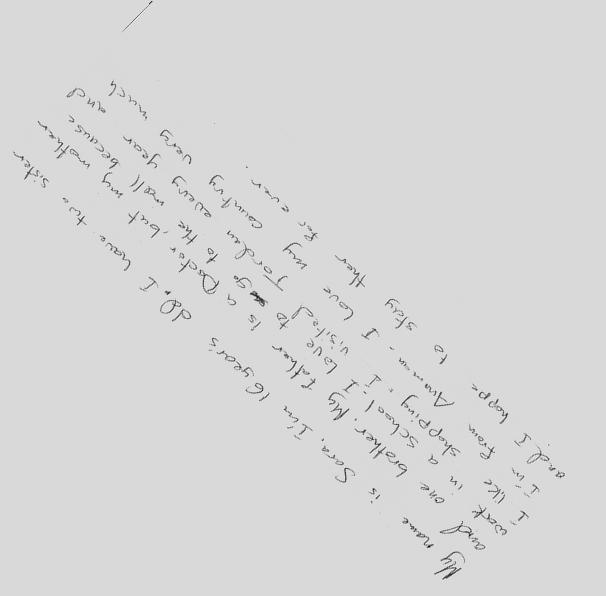 My name is Sara, I'm 16 year's old. I have two sister
and one brother. My father is a Doctor, but my mother
work in a school. I love to go to the mall because
I like shopping. I visited Jordan every year and
I'm from Amman - I love my country very much
and I hoppe to stay ther for ever.